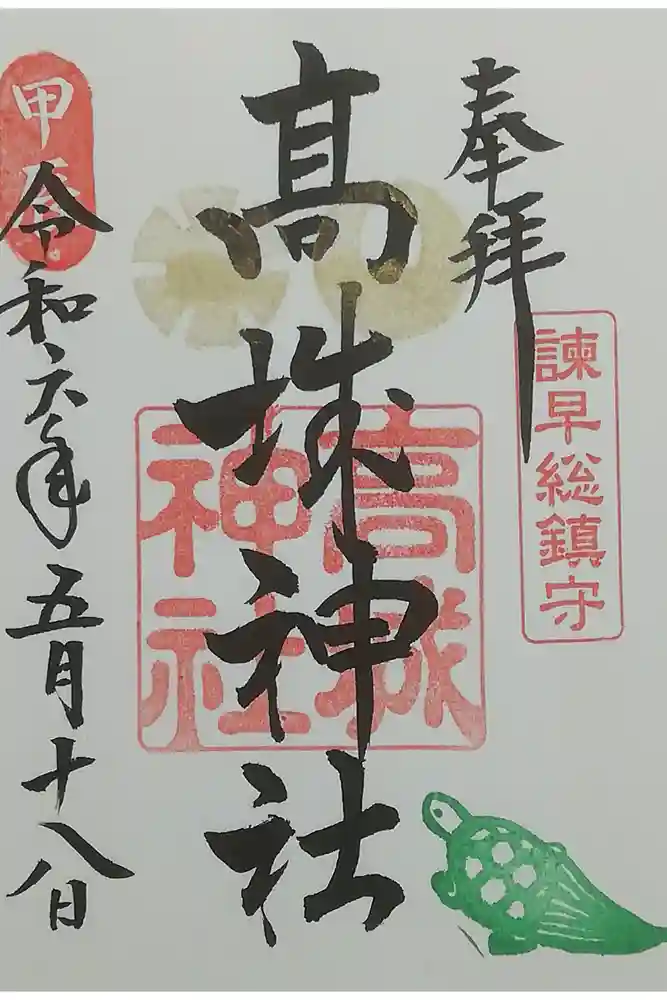 奉拝
諫早総鎮守
髙城神社
高城
神社
甲辰
令和六年五月十八日